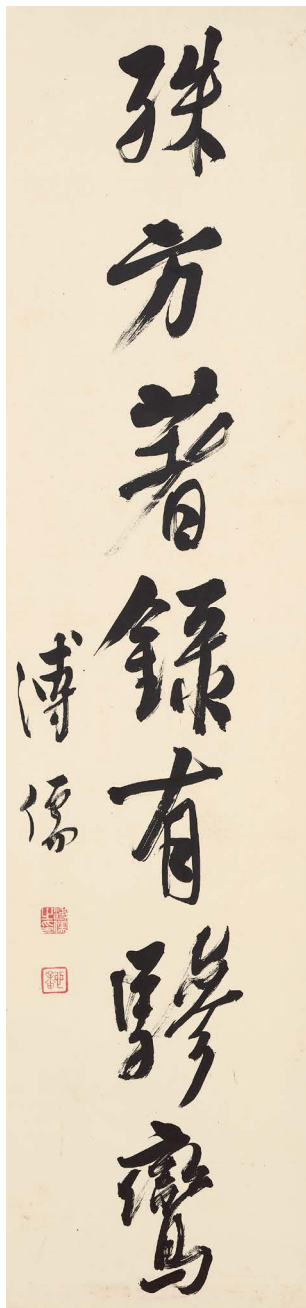 殊方著錄有驂鸞
溥儒